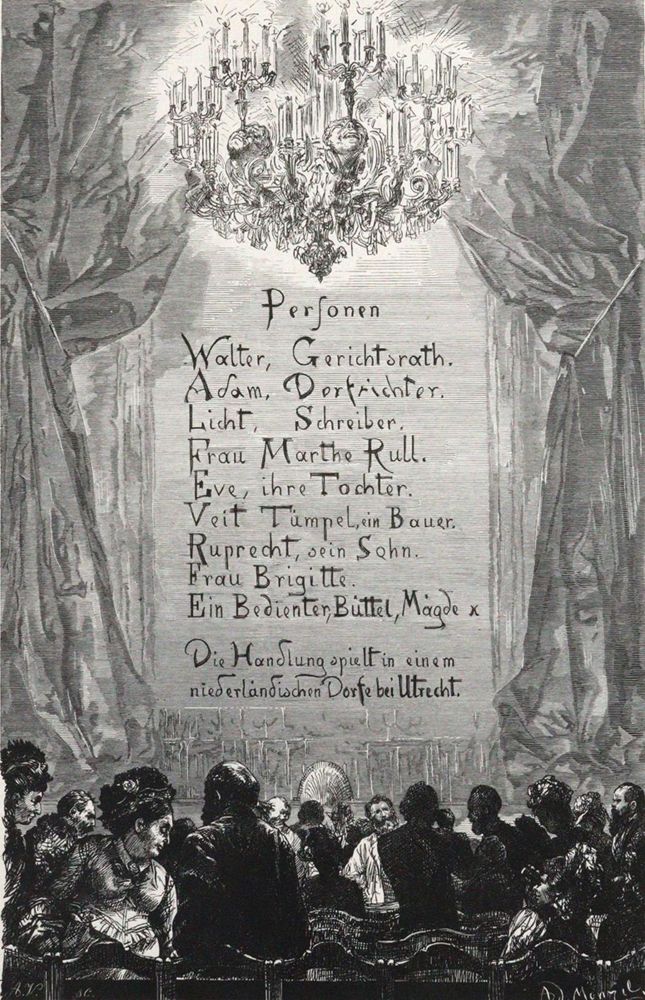 Perſonen
Walter, Gerichtsrath.
Adam, Dorfrichter.
Licht, Schreiber.
Frau Marthe Rull.
Eve, ihre Tochter.
Veit Tümpel, ein Bauer.
Ruprecht, sein Sohn.
Frau Brigitte.
Ein Bedienter, Büttel, Mägde x
Die Handlung spielt in einem
niederländischen Dorfe bei Utrecht.
Ad. Menzel